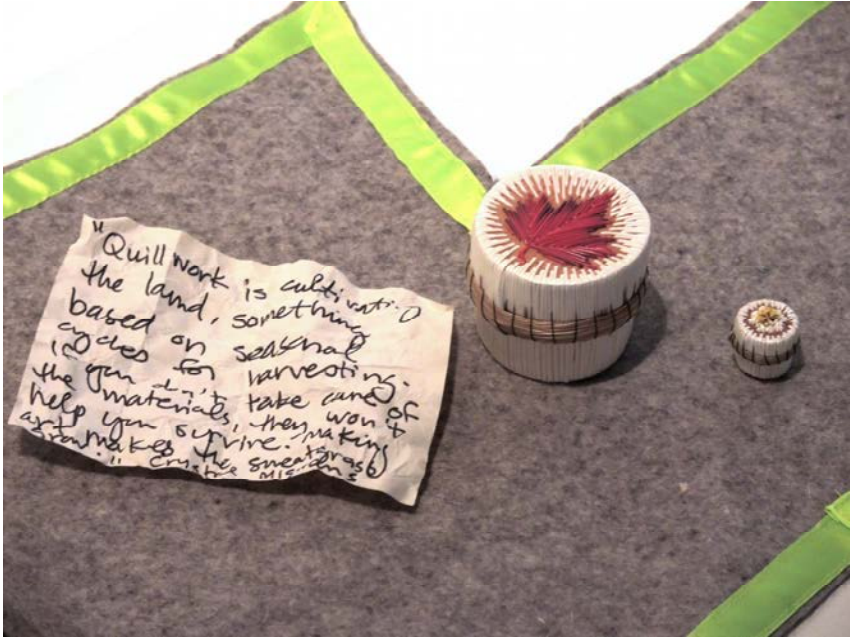 "Quill work is cultivating
the land, something
based on seasonal
cycles for harvesting.
if you don't take care of
the materials, they won't
help you survive. making
art makes the sweatgrass
grow."